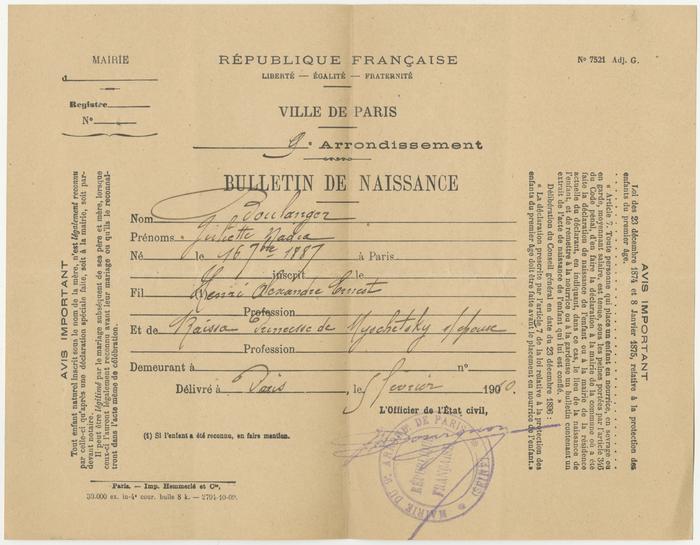 MAIRIE
d
Registre
N°
RÉPUBLIQUE FRANÇAISE
LIBERTÉ — ÉGALITÉ — FRATERNITÉ
N° 7521 Adj. G.
VILLE DE PARIS
9e Arrondissement
BULLETIN DE NAISSANCE
Nom Boulanger
Prénoms Juliette Nadia
Né le 16 7bre 1887 à Paris
inscrit le
Fil (1) Henri Alexandre Ernest
Profession
Et de Raissa Princesse de Myschetsky épouse
Profession
Demeurant à n°
Délivré à Paris, le 5 février 1900.
L'Officier de l'État civil,
(1) Si l'enfant a été reconnu, en faire mention.
MAIRIE DU 9e ARRON. DE PARIS
(SEINE)
RÉPUBLIQUE
FRANÇAISE
Paris. — Imp. Hemmerlé et Cie.
30.000 ex. in-4° cour. bulle 8 k. — 2794-10-09.
AVIS IMPORTANT
Tout enfant naturel inscrit sous le nom de la mère, n'est légalement reconnu
par celle-ci qu'après une déclaration spéciale faite, soit à la mairie, soit par-
devant notaire.
Il peut être légitimé par le mariage subséquent de ses père et mère, lorsque
ceux-ci l'auront légalement reconnu avant leur mariage ou qu'ils le reconnaî-
tront dans l'acte même de célébration.
AVIS IMPORTANT
Loi des 23 décembre 1874 et 8 Janvier 1875, relative à la protection des
enfants du premier âge.
« Article 7. Toute personne qui place un enfant en nourrice, en sevrage ou
en garde, moyennant salaire, est tenue, sous les peines portées par l'article 346
du Code pénal, d'en faire la déclaration à la mairie de la commune où a été
faite la déclaration de naissance de l'enfant ou à la mairie de la résidence
actuelle du déclarant, en indiquant, dans ce cas, le lieu de la naissance de
l'enfant, et de remettre à la nourrice ou à la gardeuse un bulletin contenant un
extrait de l'acte de naissance de l'enfant qui lui est confié. »
Délibération du Conseil général en date du 23 décembre 1896 :
« La déclaration prescrite par l'article 7 de la loi relative à la protection des
enfants du premier âge doit être faite avant le placement en nourrice de l'enfant. »